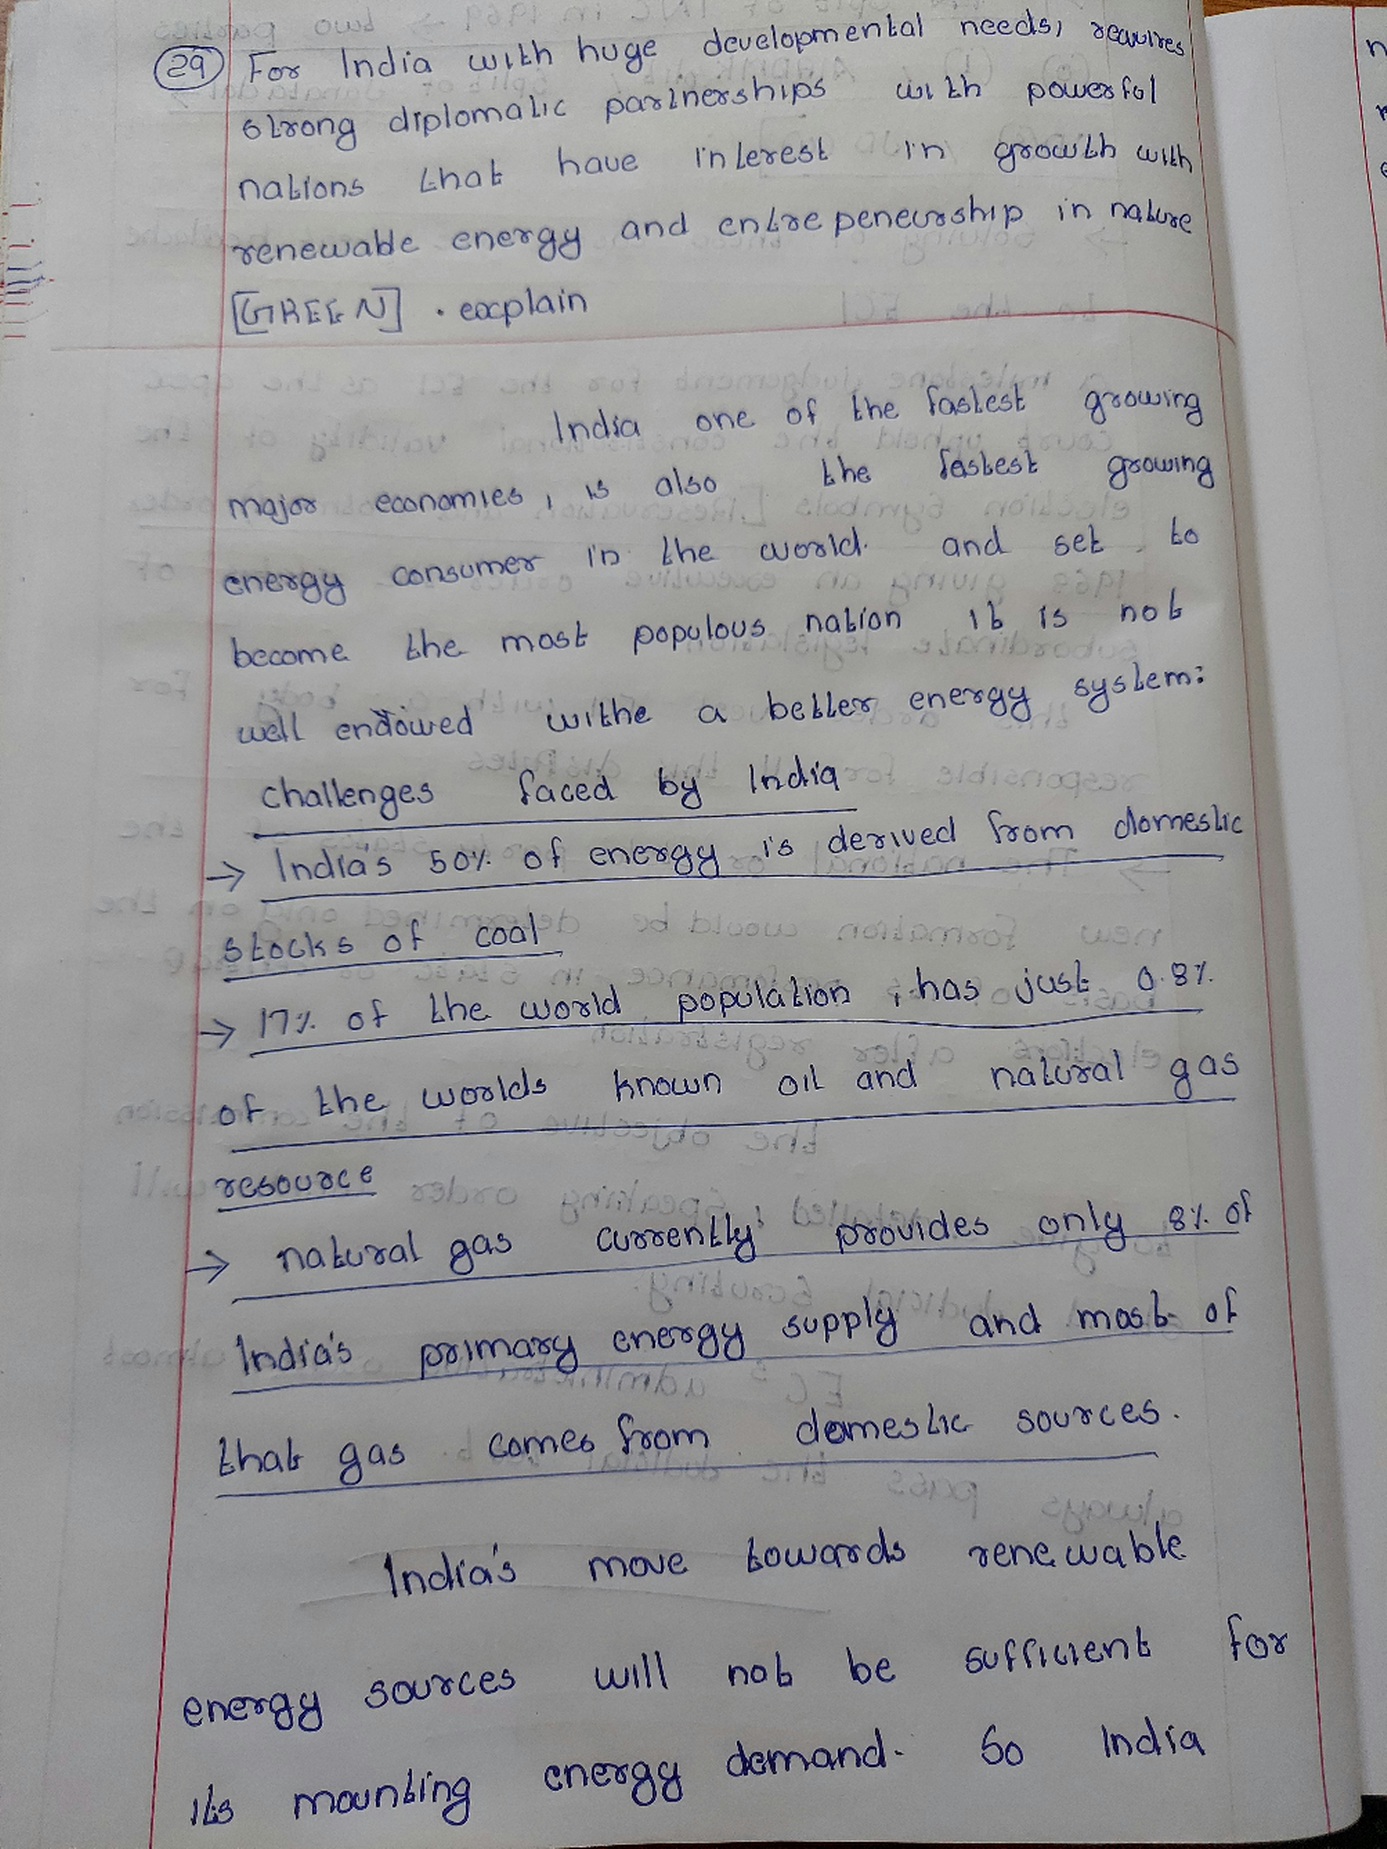 29 For India with huge developmental needs, requires
strong diplomatic partnerships with powerful
nations that have interest in growth with
renewable energy and entrepeneurship in nature
[GREEN] . explain
India one of the fastest growing
major economies, is also the fastest growing
energy consumer in the world. and set to
become the most populous nation it is not
well endowed withe a better energy system:
challenges faced by India
→ India's 50% of energy is derived from domestic
stocks of coal
→ 17% of the world population, has just 0.8%
of the worlds known oil and natural gas
resource
→ natural gas currently provides only 8% of
India's primary energy supply and most of
that gas comes from domestic sources.
India's move towards renewable
energy sources will not be sufficient for
its mounting energy demand. So India